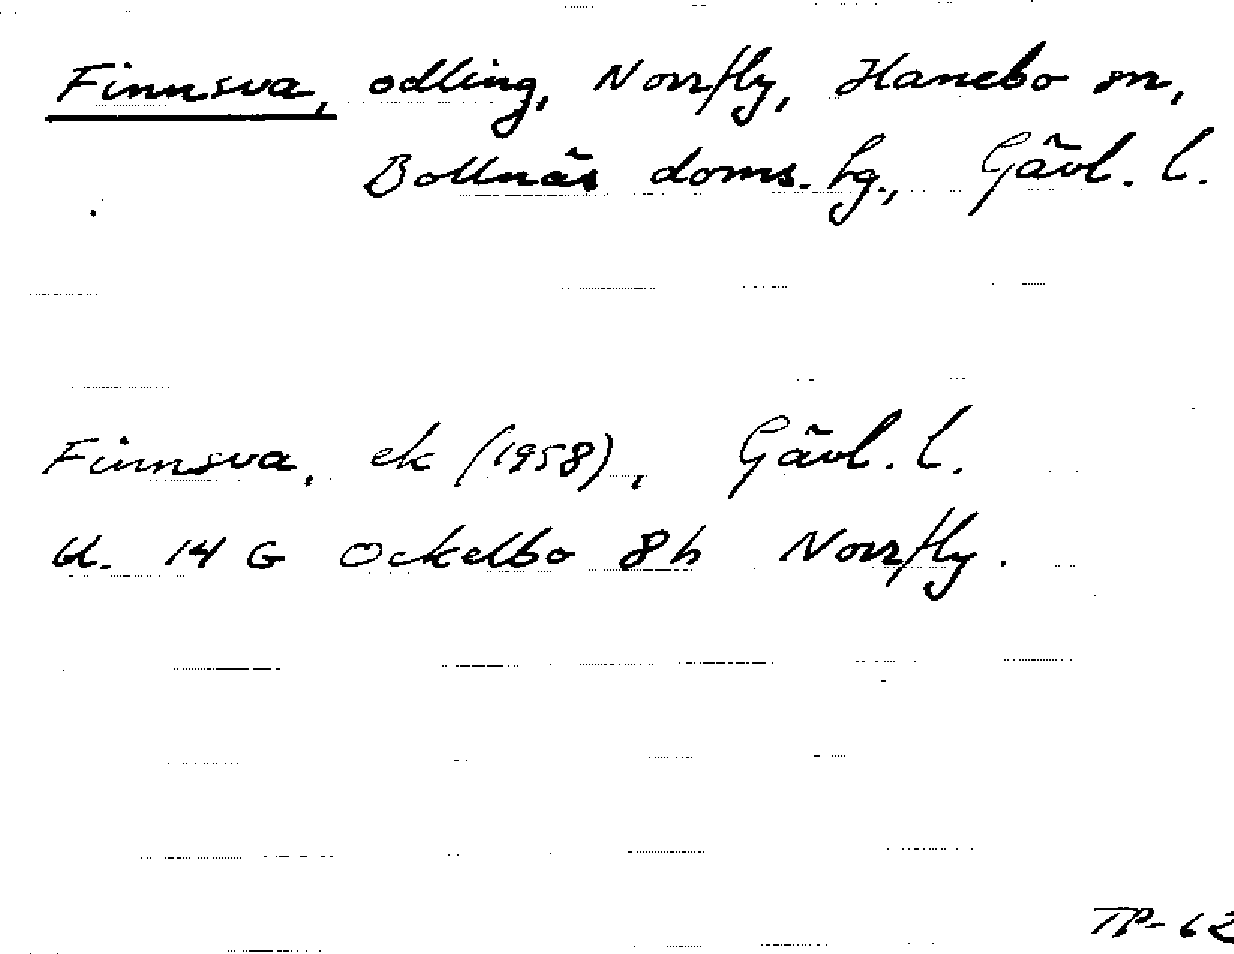 Finnsva, odling, Norrfly, Hanebo sn,
Bollnäs doms. hg., Gävl. l.
Finnsva, ek (1958), Gävl. l.
bl. 14 G Ockelbo 8h Norrfly.
TP-62